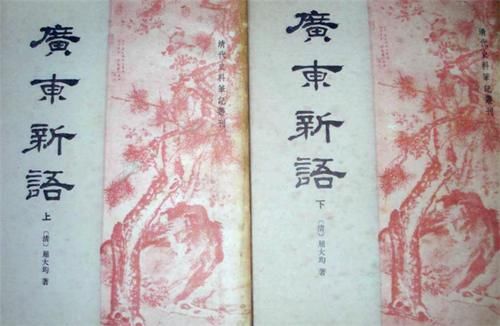 廣東新語
上
〔清〕屈大均 著
清代史料筆記叢刊
廣東新語
下
〔清〕屈大均 著
清代史料筆記叢刊